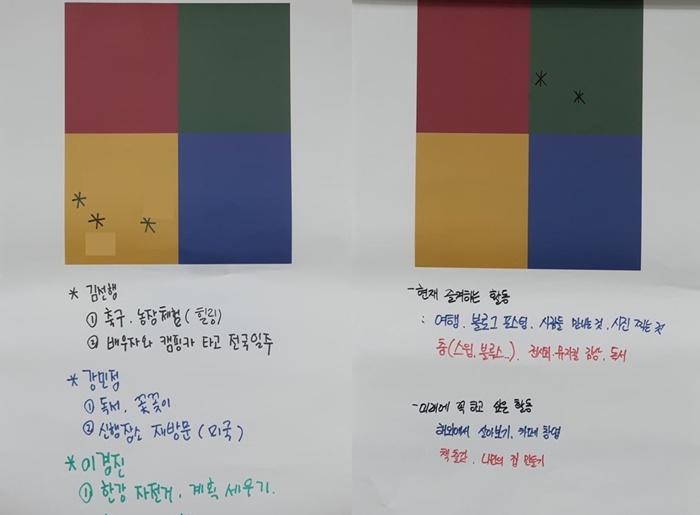 * 김선행
① 축구, 농장체험 (힐링)
② 배우자와 캠핑카 타고 전국일주
* 강민정
① 독서, 꽃꽂이
② 신행장소 재방문 (미국)
* 이경진
① 한강 자전거, 계획 세우기.
- 현재 즐겨하는 활동
: 여행, 블로그 포스팅, 사람들 만나는 것, 사진 찍는 것
춤(스윙, 블루스...), 전시회·뮤지컬 감상, 독서
- 미래에 꼭 하고 싶은 활동
해외에서 살아보기, 카페 창업
책 출간, 나만의 집 만들기